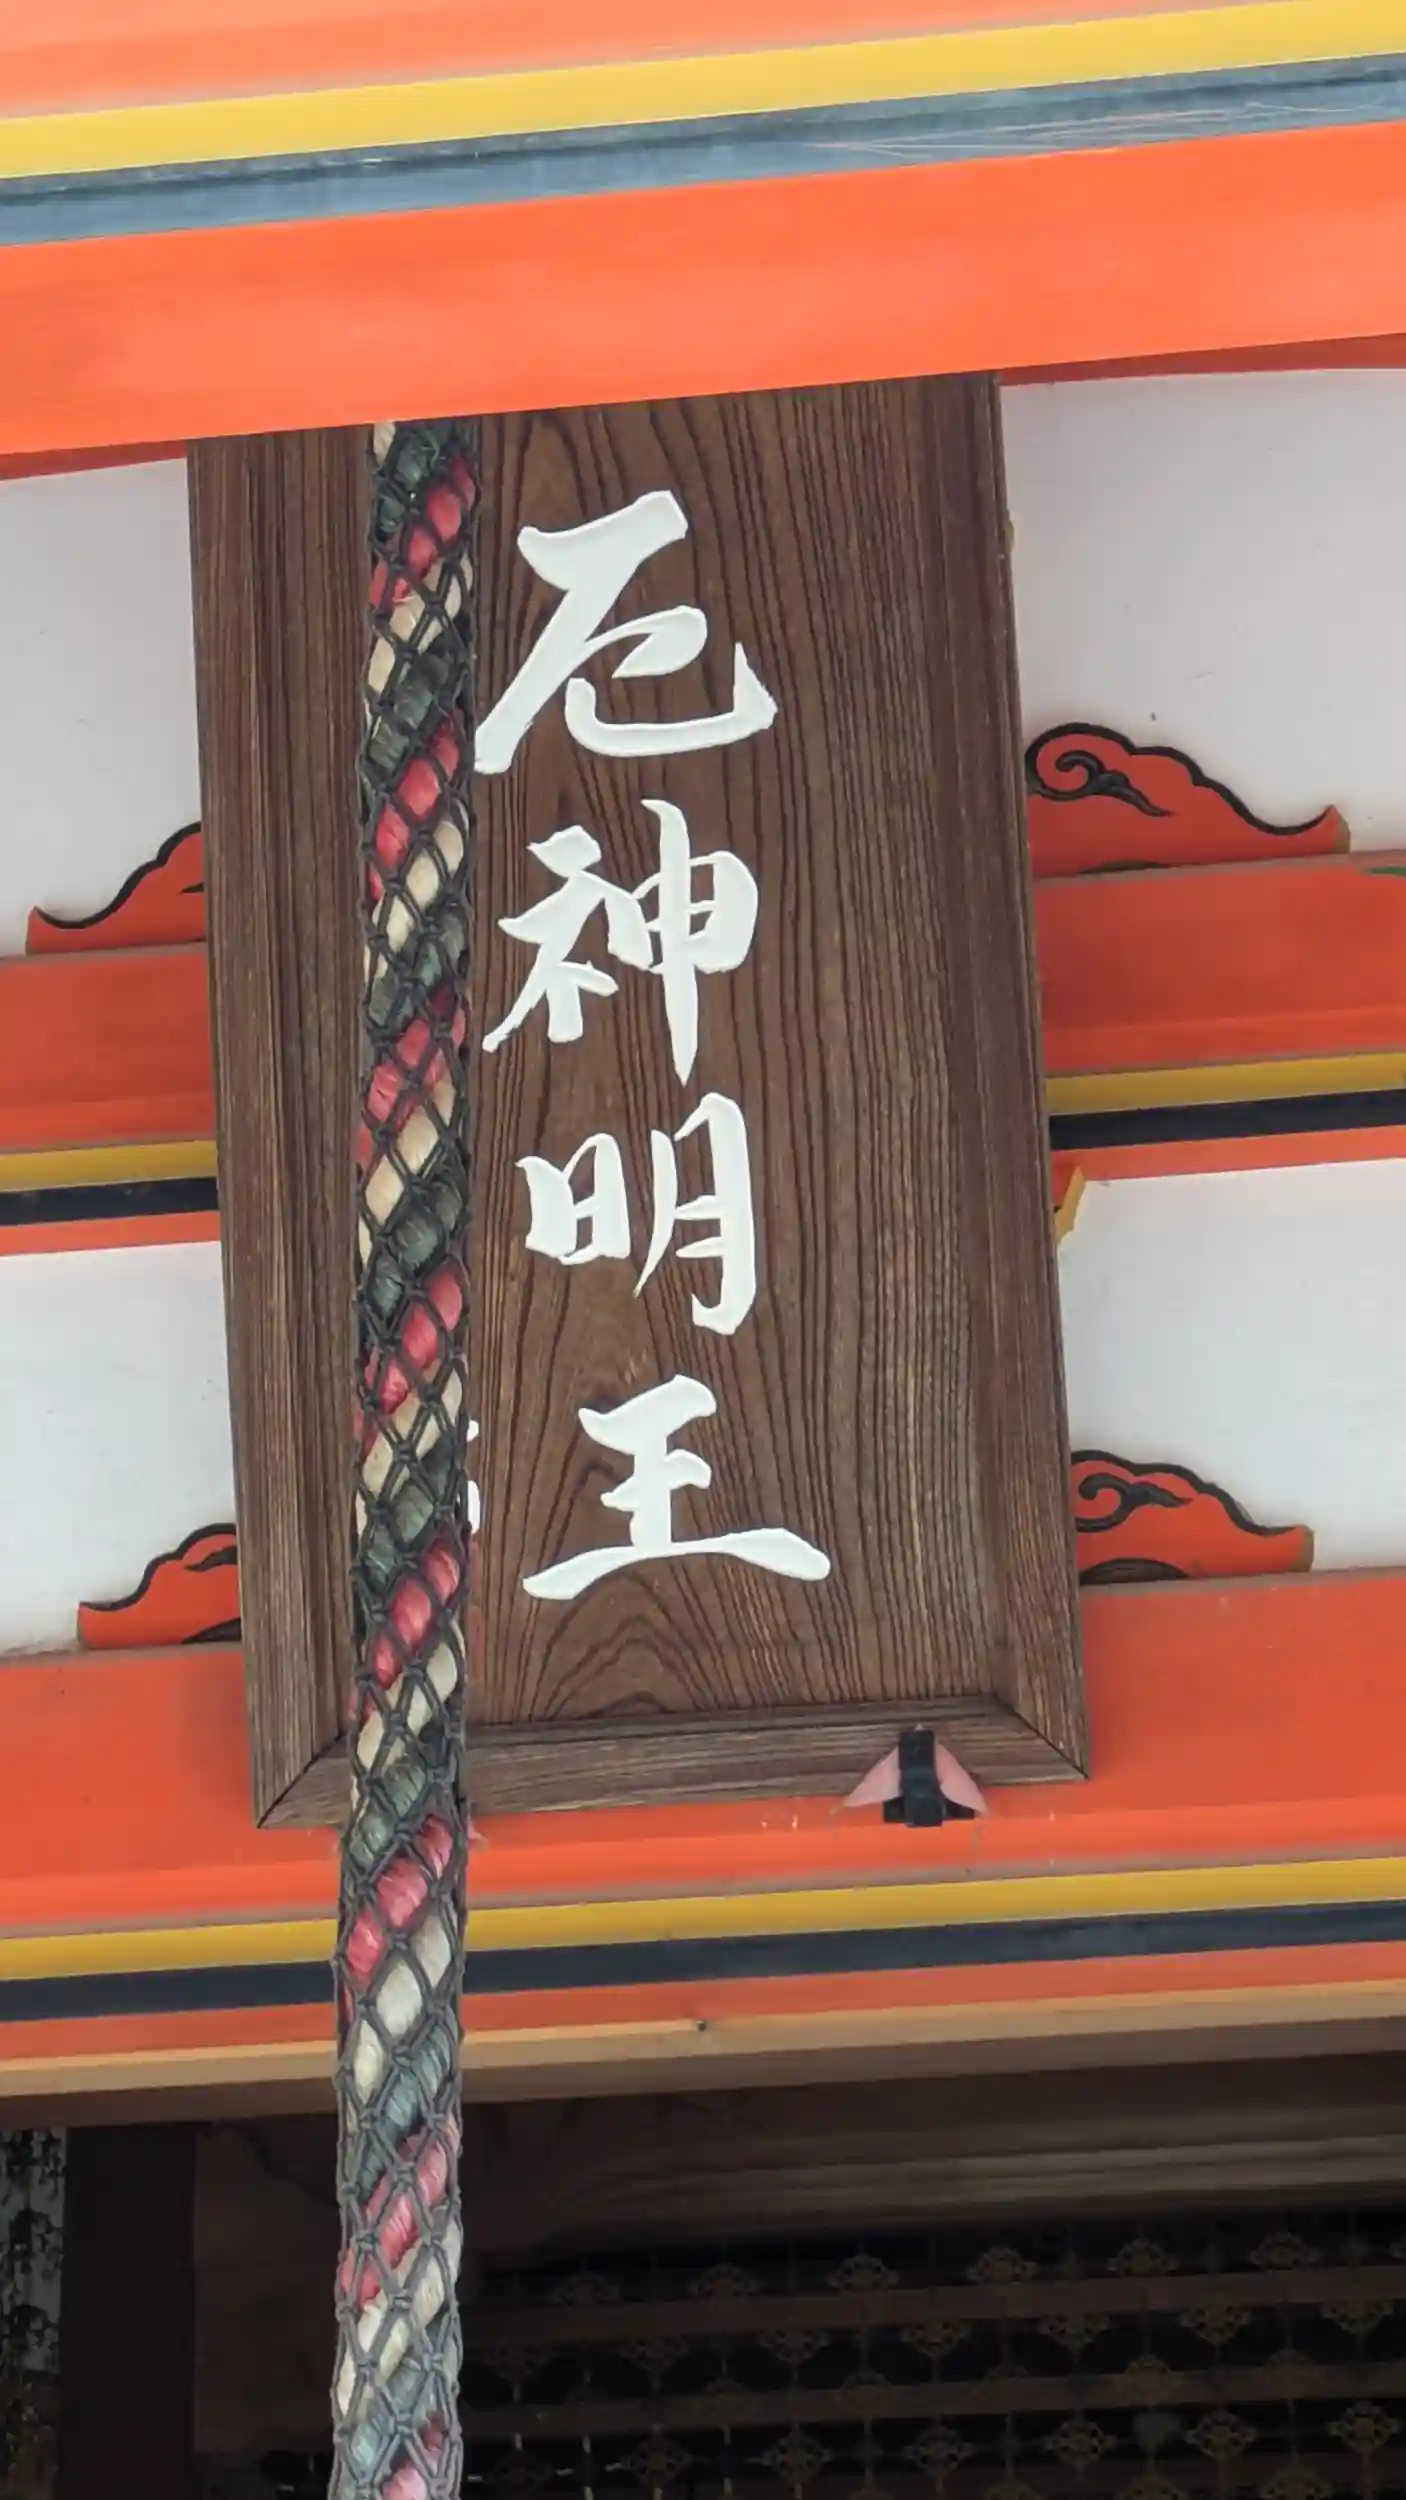 厄神明王